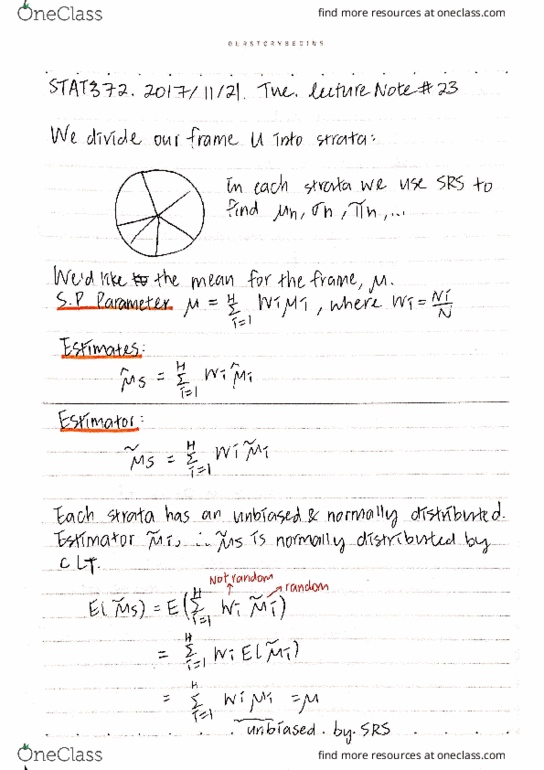 OneClass
find more resources at oneclass.com
STAT372. 2017/11/21. Tue. lecture Note # 23
We divide our frame U into strata:
In each strata we use SRS to
find μn, σn, πn, ...
We'd like to the mean for the frame, μ.
S.P Parameter μ = Σ_{i=1}^{H} Wi μi, where Wi = Ni/N
Estimates:
μ̂s = Σ_{i=1}^{H} Wi μ̂i
Estimator:
μ̃s = Σ_{i=1}^{H} Wi μ̃i
Each strata has an unbiased & normally distributed.
Estimator μ̃i, ∴ μ̃s is normally distributed by
CLT.
Not random
random
E(μ̃s) = E(Σ_{i=1}^{H} Wi μ̃i)
= Σ_{i=1}^{H} Wi E(μ̃i)
= Σ_{i=1}^{H} Wi μi = μ
unbiased by SRS
OneClass
find more resources at oneclass.com